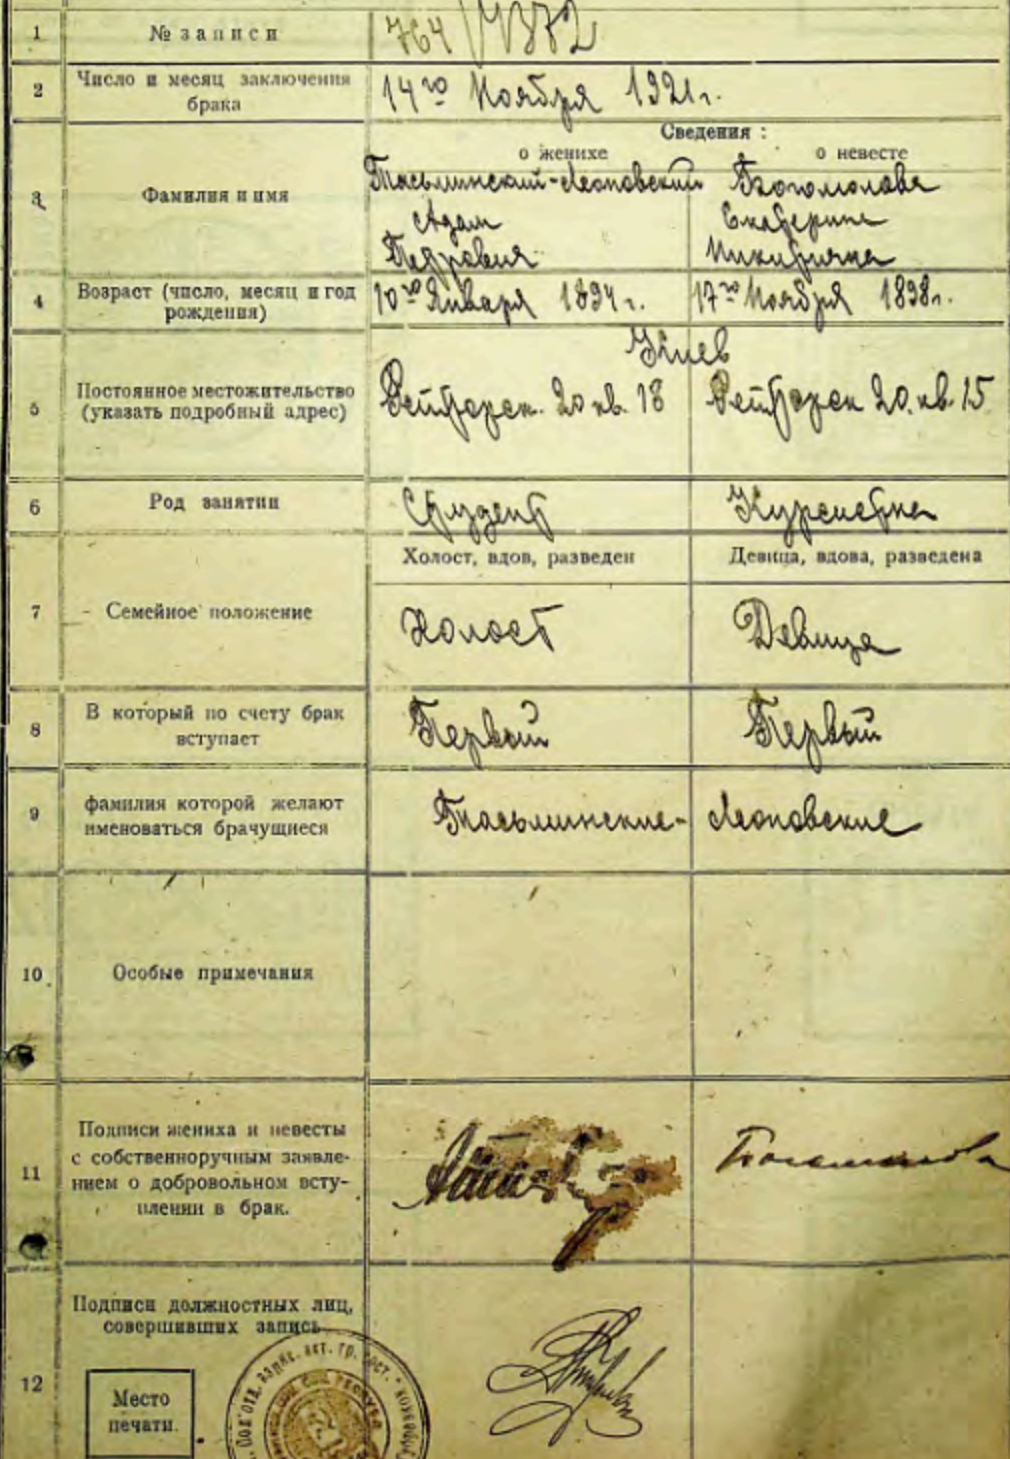 1 № записи 764/
2 Число и месяц заключения брака 14го Ноября 1921г.
Сведения :
о женихе о невесте
3 Фамилия и имя
Богомолова
Адам Екатерина
Петрович Никитична
4 Возраст (число, месяц и год рождения) 10го Января 1894г. 17го Ноября 1898г.
Киев
5 Постоянное местожительство
(указать подробный адрес) Рейтарск. 20 кв. 18 Рейтарск 20. кв. 15
6 Род занятии Студент Курсистка
Холост, вдов, разведен Девица, вдова, разведена
7 Семейное положение Холост Девица
8 В который по счету брак
вступает Первый Первый
9 фамилия которой желают
именоваться брачущиеся
10 Особые примечания
11 Подписи жениха и невесты
с собственноручным заявле-
нием о добровольном всту-
плении в брак.
Богомолова
12 Подписи должностных лиц,
совершивших запись
Место
печати.